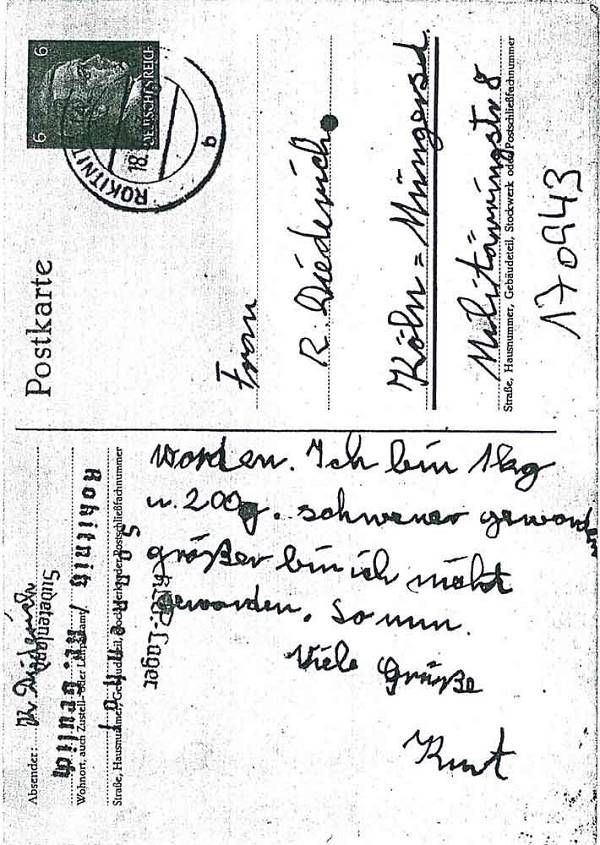 Postkarte
6 6
DEUTSCHES REICH
18.
b
Absender: K. Diederich
Sudetenland
Rokitnitz / Kr. Grulich
Wohnort, auch Zustell- oder Leitpostamt
Straße, Hausnummer, Gebäudeteil, Stockwerk oder Postschließfachnummer
Lager
worden. Ich bin 1kg
u. 200g. schwerer geworden
größer bin ich nicht
geworden. So nun.
Viele Grüße
Kurt
Frau
R. Diederich
Köln=Müngersd.
Militärringstr 8
Straße, Hausnummer, Gebäudeteil, Stockwerk oder Postschließfachnummer
170943